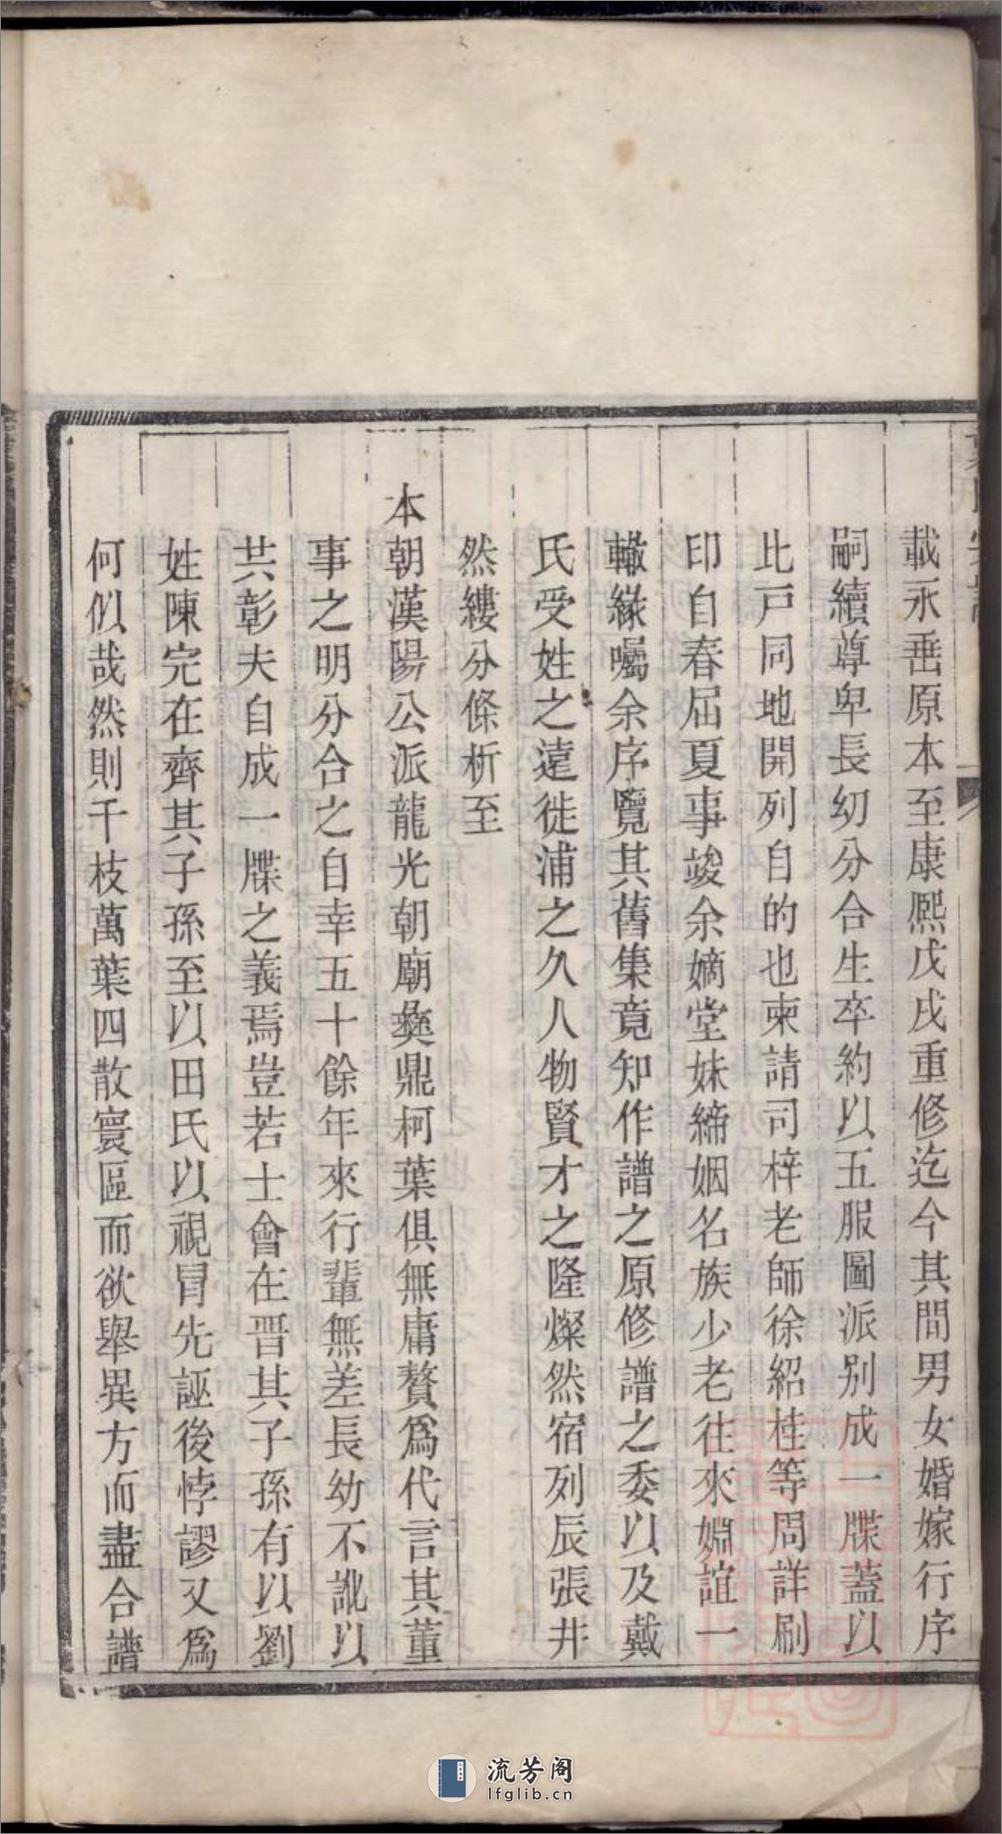 載永垂原本至康熙戊戌重修迄今其間男女婚嫁行序
嗣續尊卑長幼分合生卒約以五服圖派別成一牒蓋以
比戸同地開列自的也柬請司梓老師徐紹桂等周詳刷
印自春屆夏事竣余嫡堂妹締姻名族少老往來婣誼一
轍緣囑余序覽其舊集竟知作譜之原修譜之委以及戴
氏受姓之遠徙浦之久人物賢才之隆燦然宿列辰張井
然縷分條析至
本朝漢陽公派龍光朝廟彜鼎柯葉俱無庸贅爲代言其董
事之明分合之自幸五十餘年來行輩無差長幼不訛以
共彰夫自成一牒之義焉豈若士會在晋其子孫有以劉
姓陳完在齊其子孫至以田氏以視冒先誣後悖謬又爲
何似哉然則千枝萬葉四散寰區而欲舉異方而盡合譜
流芳阁
lfglib.cn